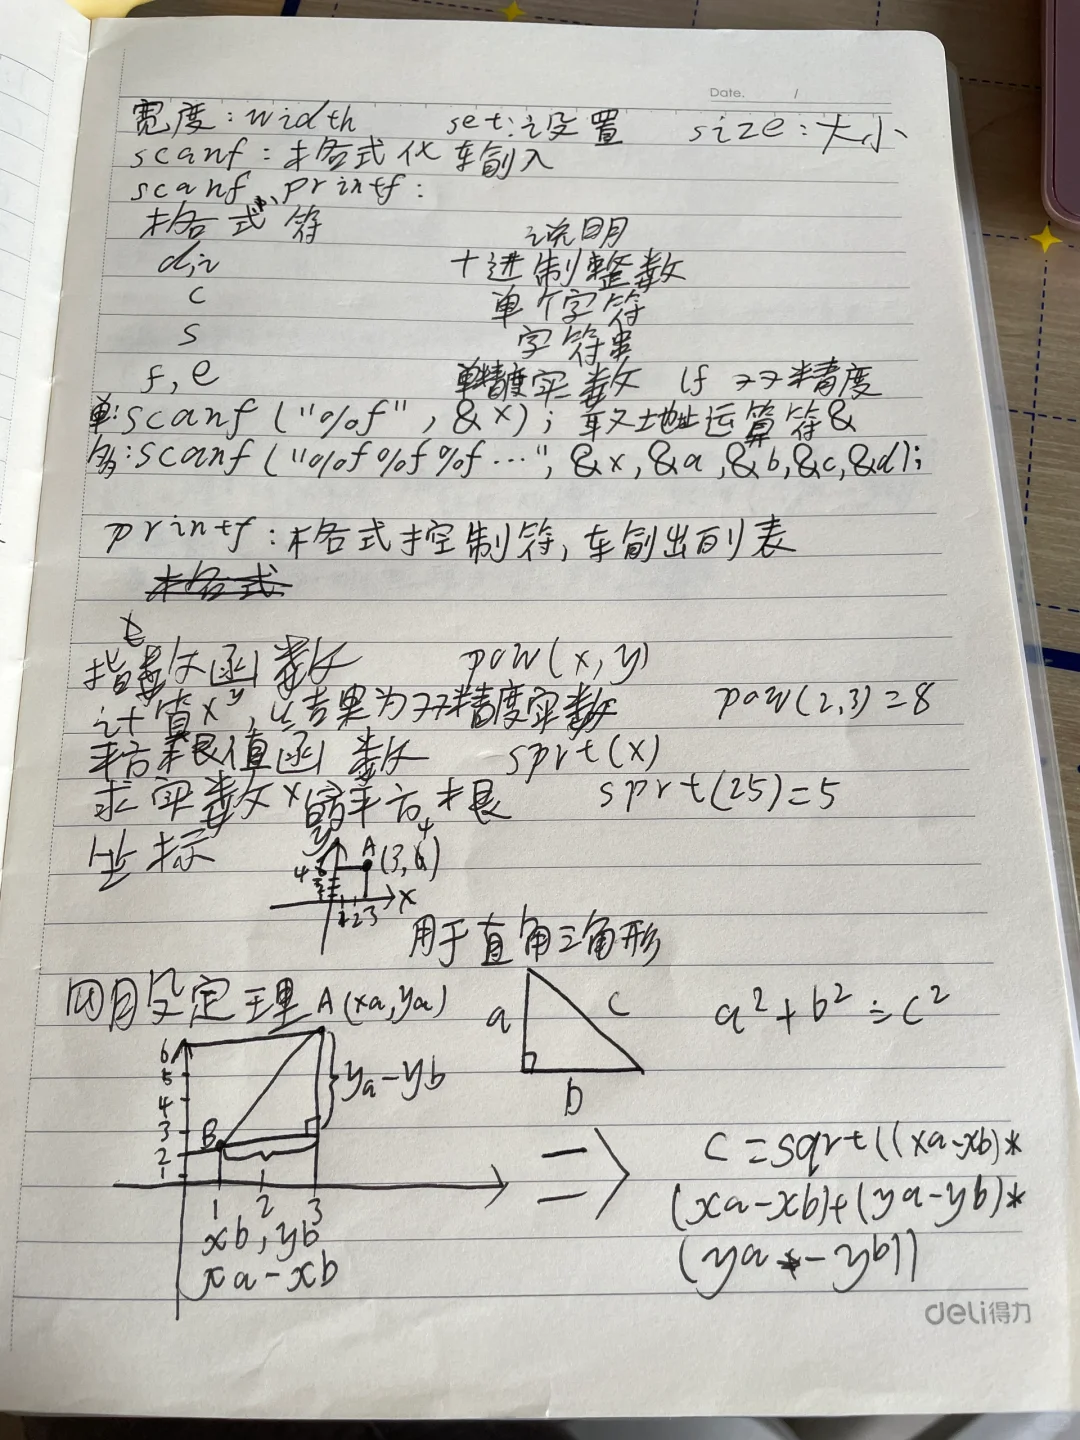 Date. /
宽度: width set:设置 size:大小
scanf:格式化输入
scanf, printf:
格式符 说明
d,i 十进制整数
c 单个字符
s 字符串
f, e 单精度实数 lf 双精度
单:scanf ("%f", &x); 取地址运算符&
多:scanf ("%f%f%f…", &x,&a,&b,&c,&d);
printf:格式控制符,输出列表
格式
指数函数 pow(x,y)
计算x^y,结果为双精度实数 pow(2,3)=8
平方根值函数 sprt(x)
求实数x的平方根 sprt(25)=5
坐标
y
4
A (3,4)
1 2 3 x
用于直角三角形
勾股定理 A(xa,ya)
a c
b
a²+b²=c²
6
5
4
3
2
1
B
ya-yb
1 2 3
xb,yb
xa-xb
=> c=sqrt((xa-xb)*
(xa-xb)+(ya-yb)*
(ya-yb))
deli得力